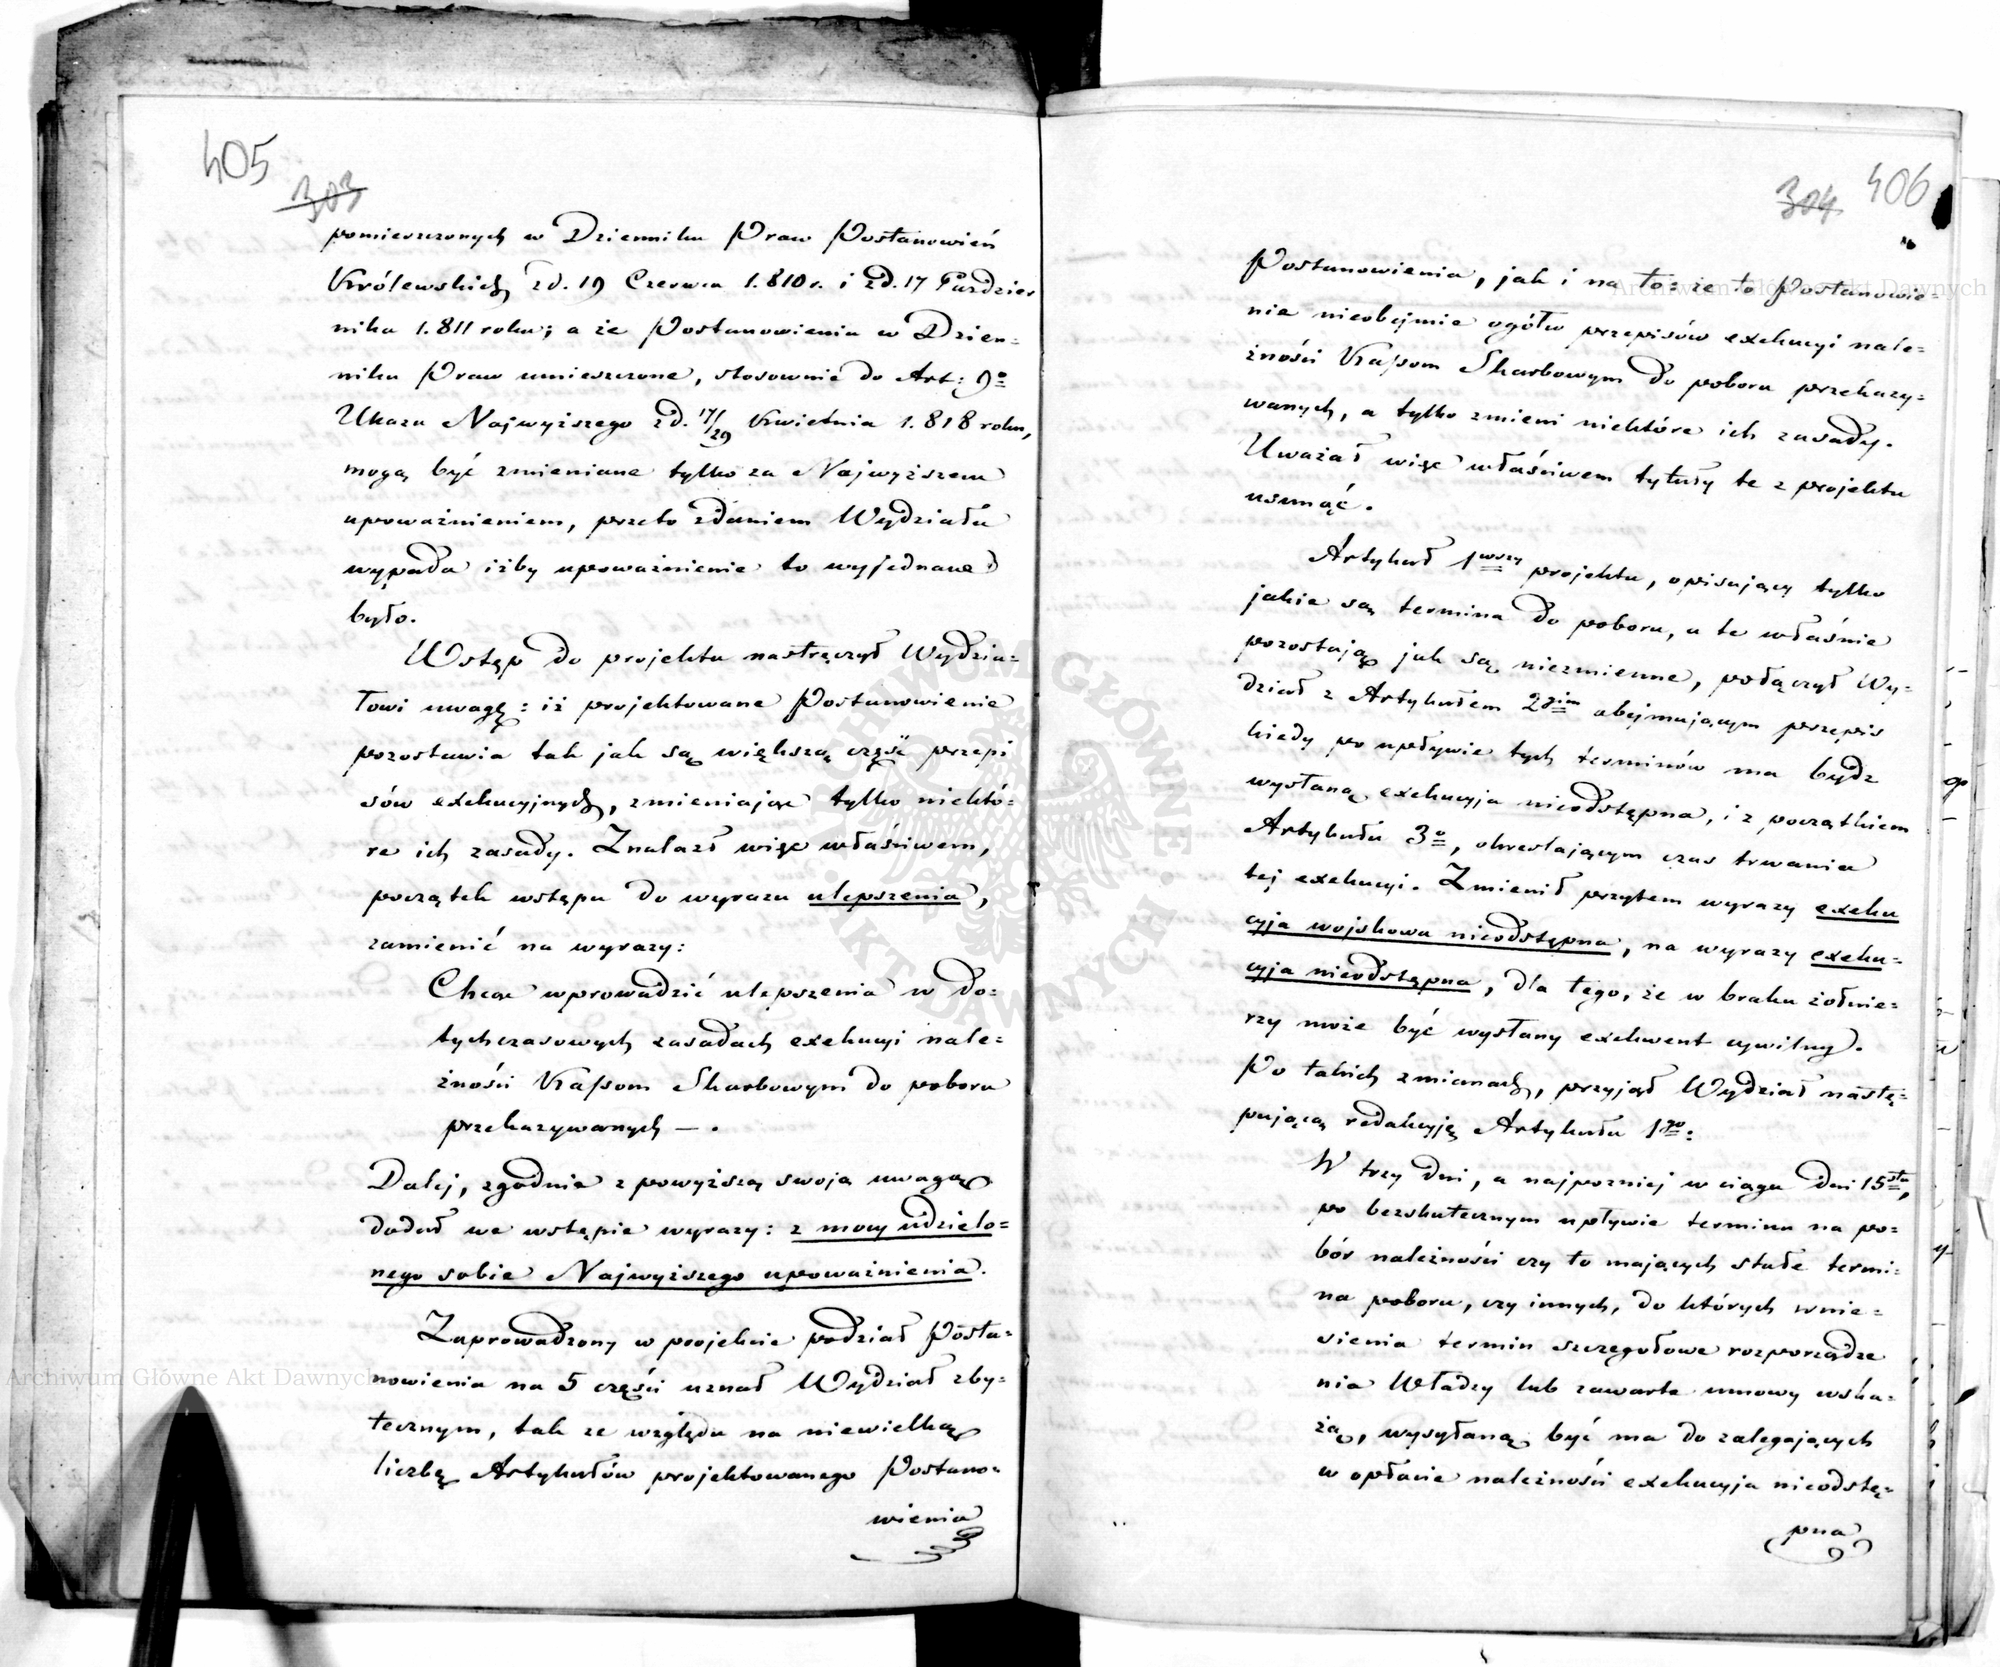 405
303
pomieszczonych w Dzienniku Praw Postanowień
Królewskich z d. 19 Czerwca 1.810 r. i z d. 17 Paździer
nika 1.811 roku; a że Postanowienia w Dzien=
niku Praw umieszczone, stosownie do Art: 9º
Ukazu Najwyższego z d. 17/29 Kwietnia 1.818 roku,
mogą być zmieniane tylko za Najwyższem
upoważnieniem, przeto zdaniem Wydziału
wypada iżby upoważnienie to wyjednane
było.
Wstęp do projektu nastręczył Wydzia=
łowi uwagę: iż projektowane Postanowienie
pozostawia tak jak są większą część przepi
sów exekucyjnych, zmieniając tylko niektó=
re ich zasady. Znalazł więc właściwem,
początek wstępu do wyrazu ulepszenia,
zamienić na wyrazy:
Chcąc wprowadzić ulepszenia w do=
tychczasowych zasadach exekucyi nale=
żności Kassom Skarbowym do poboru
przekazywanych — .
Dalej, zgodnie z powyższą swoją uwagą
dodał we wstępie wyrazy: z mocy udzielo=
nego sobie Najwyższego upoważnienia.
Zaprowadzony w projekcie podział Posta=
nowienia na 5 części uznał Wydział zby=
tecznym, tak ze względu na niewielką
liczbę Artykułów projektowanego Postano=
wienia
304 406
Postanowienia, jak i na to: że to Postanowie=
nie nieobejmie ogółu przepisów exekucyi nale=
żności Kassom Skarbowym do poboru przekazy=
wanych, a tylko zmieni niektóre ich zasady.
Uważał więc właściwem tytuły te z projektu
usunąć.
Artykuł 1wszy projektu, opisujący tylko
jakie są termina do poboru, a te właśnie
pozostają jak są niezmienne, połączył Wy=
dział z Artykułem 2gim obejmującym przepis
kiedy po upływie tych terminów ma bydź
wysłaną exekucyja nieodstępna, i z początkiem
Artykułu 3º, określającym czas trwania
tej exekucyi. Zmienił przytem wyrazy exeku
cyja wojskowa nieodstępna, na wyrazy exeku=
cyja nieodstępna, dla tego, że w braku żołnie=
rzy może być wysłany exekwent cywilny.
Po takich zmianach, przyjął Wydział nastę=
pującą redakcyję Artykułu 1go:
W trzy dni, a najpozniej w ciągu dni 15stu,
po bezskutecznym upływie terminu na po=
bór należności czy to mających stałe termi=
na poboru, czy innych, do których wnie=
sienia termin szczegółowe rozporządze
nia Władzy lub zawarte umowy wska=
żą, wysyłaną być ma do zalegających
w opłacie należności exekucyja nieodstę=
pna
Archiwum Główne Akt Dawnych
Archiwum Główne Akt Dawnych
ARCHIWUM GŁÓWNE AKT DAWNYCH